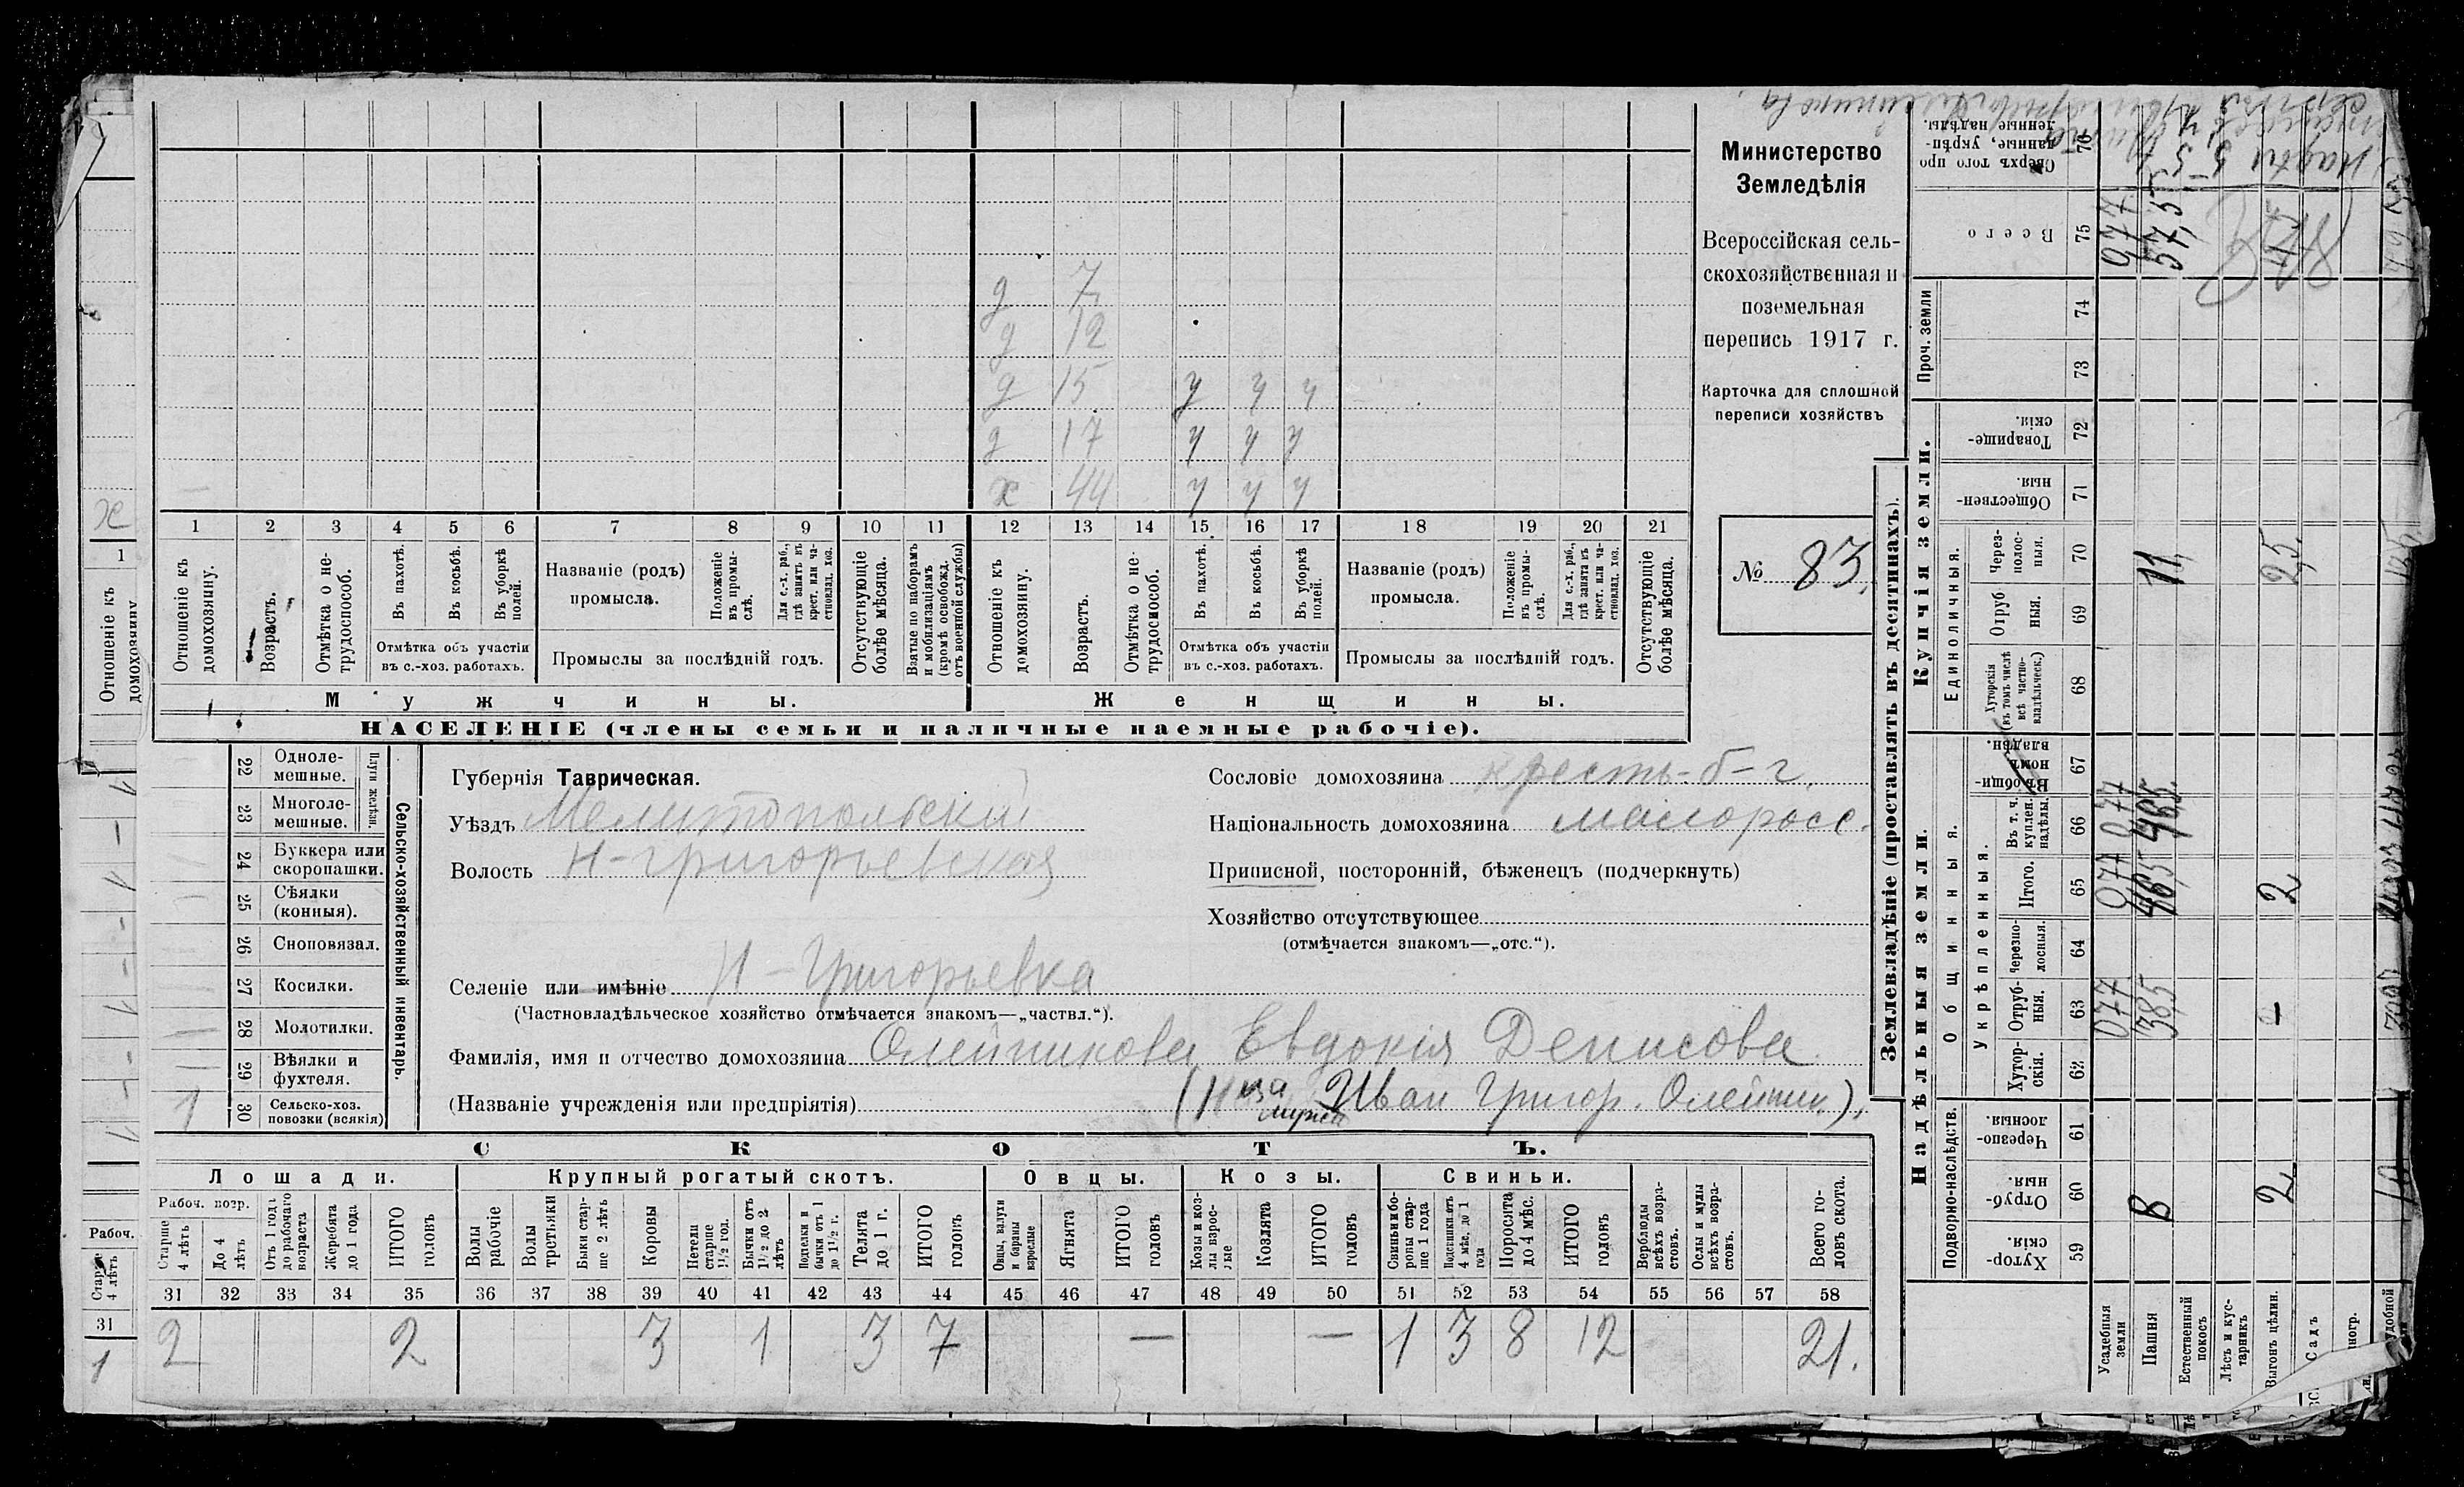 Министерство
Земледѣлія
Всероссійская сель-
скохозяйственная и
поземельная
перепись 1917 г.
Карточка для сплошной
переписи хозяйствъ
№ 83.
д 7
д 12
д 15 у у у
д 17 у у у
х 44 у у у
1 2 3 4 5 6 7 8 9 10 11 12 13 14 15 16 17 18 19 20 21
Отношеніе къ домохозяину.
Возрастъ.
Отмѣтка о не-трудоспособ.
Въ пахотѣ.
Въ косьбѣ.
Въ уборкѣ полей.
Отмѣтка объ участіи
въ с.-хоз. работахъ.
Названіе (родъ)
промысла.
Положеніе въ промы-слѣ.
Для с.-х. раб., гдѣ занятъ въ крест. или ча-стновлад. хоз.
Промыслы за послѣдній годъ.
Отсутствующіе болѣе мѣсяца.
Взятые по наборамъ и мобилизаціямъ (кромѣ освобожд. отъ военной службы)
Отношеніе къ домохозяину.
Возрастъ.
Отмѣтка о не-трудоспособ.
Въ пахотѣ.
Въ косьбѣ.
Въ уборкѣ полей.
Отмѣтка объ участіи
въ с.-хоз. работахъ.
Названіе (родъ)
промысла.
Положеніе въ промы-слѣ.
Для с.-х. раб., гдѣ занята въ крест. или ча-стновлад. хоз.
Промыслы за послѣдній годъ.
Отсутствующіе болѣе мѣсяца.
Мужчины. Женщины.
НАСЕЛЕНІЕ (члены семьи и наличные наемные рабочіе).
Сельско-хозяйственный инвентарь.
Плуги желѣзн.
22 Одноле-мешные.
23 Многоле-мешные.
24 Буккера или скоропашки.
25 Сѣялки (конныя).
26 Сноповязал.
27 Косилки.
28 Молотилки.
29 Вѣялки и фухтеля.
1 30 Сельско-хоз. повозки (всякія)
Губернія Таврическая.
Уѣздъ Мелитопольскій
Волость Н-Григорьевская
Селеніе или имѣніе Н-Григорьевка
(Частновладѣльческое хозяйство отмѣчается знакомъ—„частвл.“).
Фамилія, имя и отчество домохозяина Олейникова Евдокія Денисова
(Названіе учрежденія или предпріятія) Иван Григор. Олейник).
Сословіе домохозяина кресть-б-г.
Національность домохозяина малоросс.
Приписной, посторонній, бѣженецъ (подчеркнуть)
Хозяйство отсутствующее
(отмѣчается знакомъ—„отс.“).
СКОТЪ.
Лошади. Крупный рогатый скотъ. Овцы. Козы. Свиньи.
Рабоч. возр.
Старше 4 лѣтъ
До 4 лѣтъ
Отъ 1 года до рабочаго возраста
Жеребята до 1 года
ИТОГО головъ
Волы рабочіе
Волы третьяки
Быки стар-ше 2 лѣтъ
Коровы
Нетели старше 1½ год.
Бычки отъ 1½ до 2 лѣтъ
Подтелки и бычки отъ 1 до 1½ г.
Телята до 1 г.
ИТОГО головъ
Овцы, валухи и бараны взрослые
Ягнята
ИТОГО головъ
Козы и коз-лы взрос-лые
Козлята
ИТОГО головъ
Свиньи и бо-ровы стар-ше 1 года
Подсвинки отъ 4 мѣс. до 1 года
Поросята до 4 мѣс.
ИТОГО головъ
Верблюды всѣхъ возра-стовъ.
Ослы и мулы всѣхъ возра-стовъ.
Всего го-ловъ скота.
31 32 33 34 35 36 37 38 39 40 41 42 43 44 45 46 47 48 49 50 51 52 53 54 55 56 57 58
2 2 3 1 3 7 — — 1 3 8 12 21.
Землевладѣніе (проставлять въ десятинахъ).
Надѣльныя земли. Купчія земли. Проч. земли
Подворно-наслѣдств.
Общинныя.
Укрѣпленныя.
Единоличныя.
Хутор-скія. 59
Отруб-ныя. 60
Черезпо-лосныя. 61
Хутор-скія. 62
Отруб-ныя. 63
Черезпо-лосныя. 64
Итого. 65
Въ т. ч. куплен. надѣлы. 66
Въ общи-номъ владѣн. 67
Хуторскія (въ томъ числѣ всѣ частно-владѣльческ.) 68
Отруб-ныя. 69
Через-полос-ныя. 70
Обществен-ныя. 71
Товарище-скія. 72
73
74
Всего 75
Сверхъ того про-данные, укрѣп-ленные надѣлы. 76
Усадебныя земли 077 077 077
Пашня 8 385 465 465 11 57,5
Естественный покосъ
Лѣсъ и кус-тарникъ
Выгонъ цѣлин. 2 — 2 2,5
Садъ
Отношеніе къ домохозяину
х
1
Рабоч.
31
1